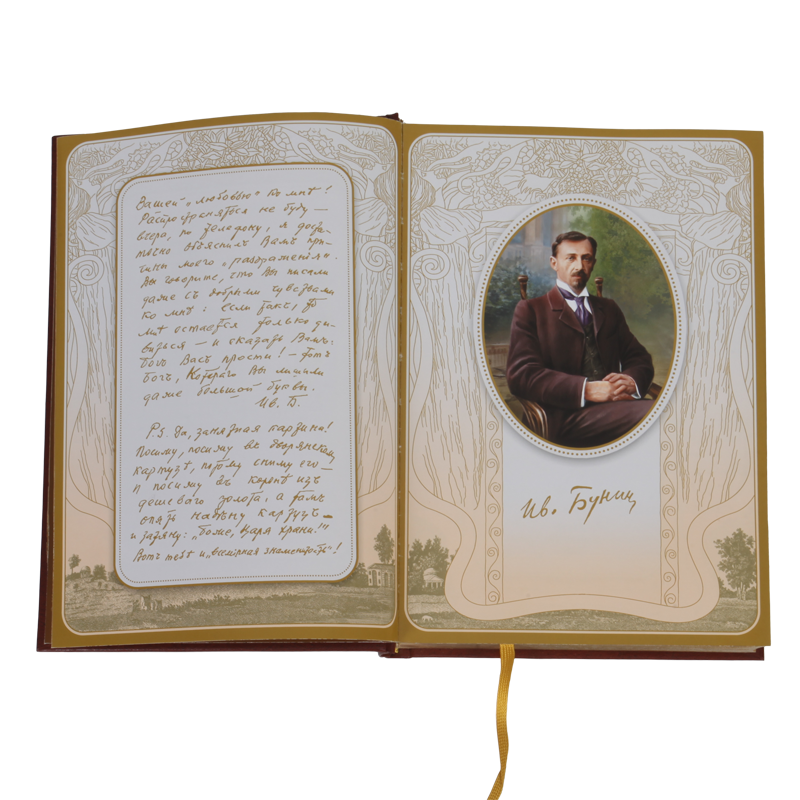 Вашей „любовью" ко мнѣ!
Распространяться не буду —
вчера, по телефону, я доста-
точно объяснилъ Вамъ при-
чины моего „раздраженiя".
Вы говорите, что Вы писали
даже съ добрыми чувствами
ко мнѣ: если такъ, то
мнѣ остается только ди-
виться — и сказать Вамъ:
Богъ Васъ прости! — тотъ
Богъ, Котораго Вы лишили
даже большой буквы.
Ив. Б.
P.S. Да, занятная картина!
Посижу, посижу въ дворянскомъ
картузѣ, потомъ сниму его —
и посижу въ коронѣ изъ
дешеваго золота, а тамъ
опять надѣну картузъ —
и затяну: „Боже, Царя храни!"
Вотъ тебѣ и „всемiрная знаменитость"!
Ив. Бунин